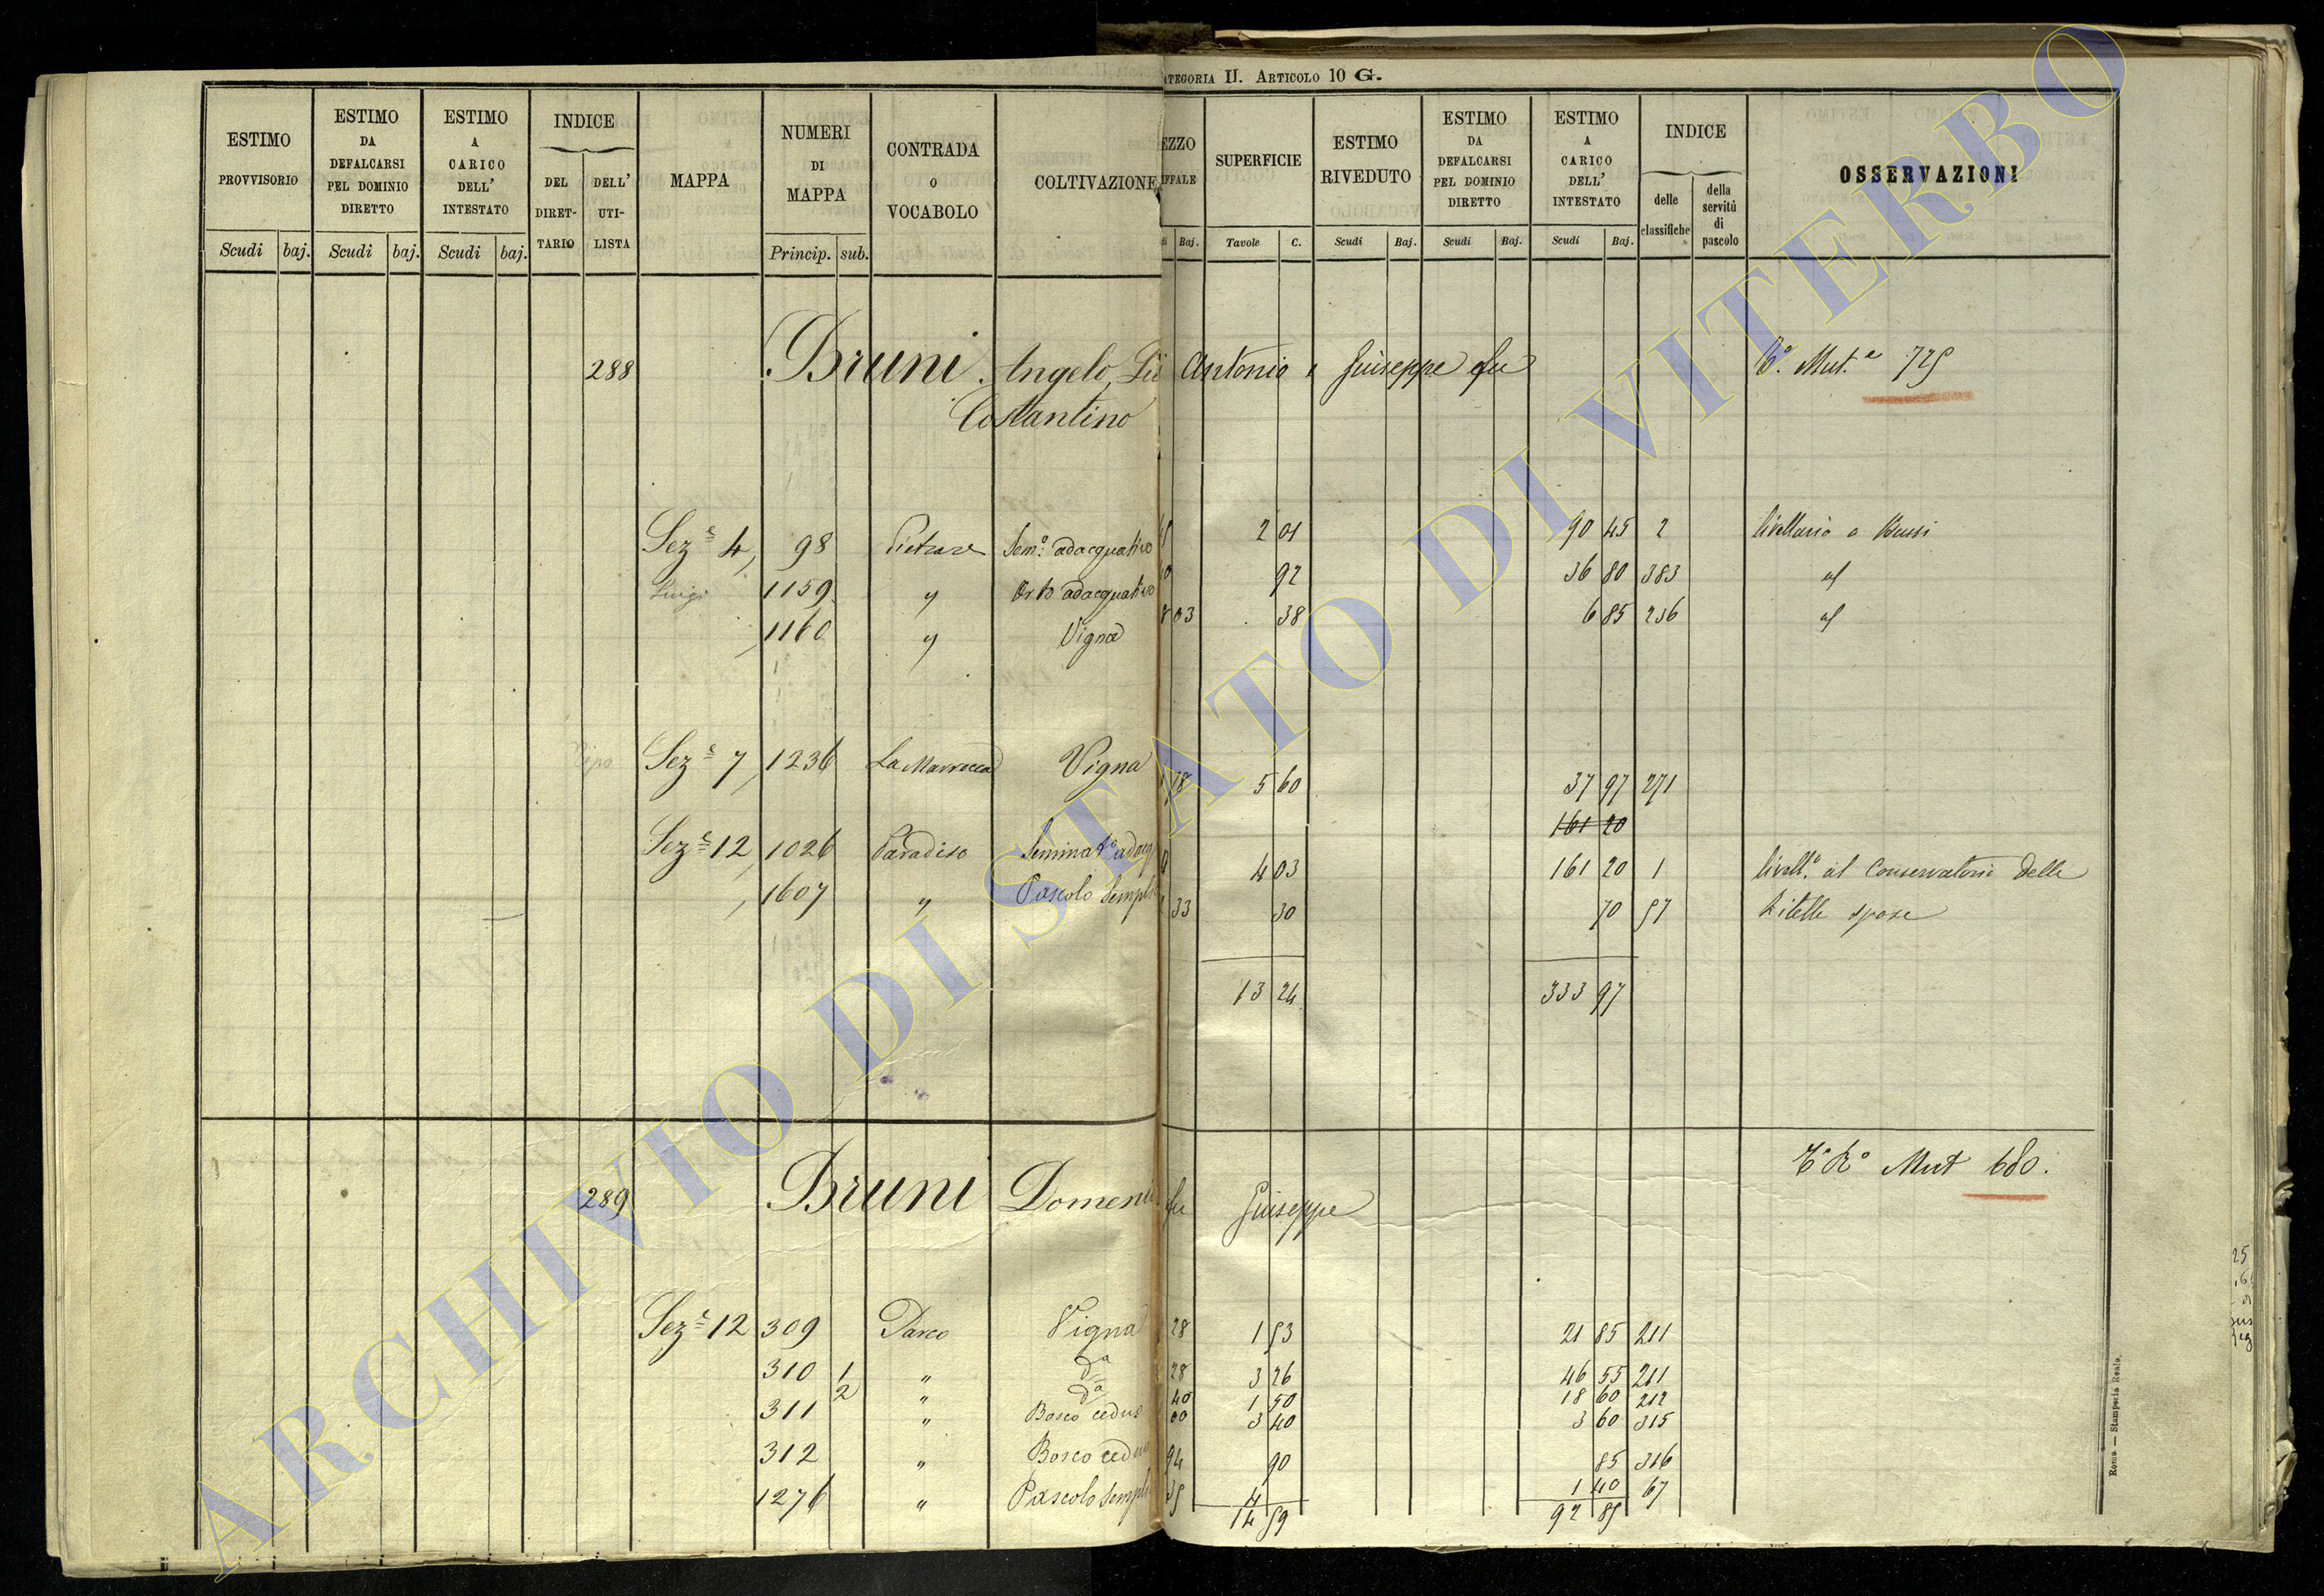 ATEGORIA II. ARTICOLO 10 G.
ESTIMO PROVVISORIO
ESTIMO DA DEFALCARSI PEL DOMINIO DIRETTO
ESTIMO A CARICO DELL' INTESTATO
INDICE
DEL DIRET-TARIO
DELL' UTI-LISTA
MAPPA
NUMERI DI MAPPA
CONTRADA O VOCABOLO
COLTIVAZIONE
EZZO
IFFALE
SUPERFICIE
ESTIMO RIVEDUTO
ESTIMO DA DEFALCARSI PEL DOMINIO DIRETTO
ESTIMO A CARICO DELL' INTESTATO
INDICE
delle classifiche
della servitù di pascolo
OSSERVAZIONI
Scudi baj. Scudi baj. Scudi baj. Princip. sub. Baj. Tavole C. Scudi Baj. Scudi Baj. Scudi Baj.
288 Bruni Angelo, Antonio e Giuseppe fu Mut.e 725
Costantino
Sez.e 4 98 Pietrare Sem.o adacquativo 2 01 90 45 2 livellario a Bussi
Luigi 1159 " Orto adacquativo 92 36 80 383 id
1160 " Vigna 03 38 6 85 236 id
Sez.e 7 1236 La Marrocca Vigna 78 5 60 37 97 271
161 20
Sez.e 12 1026 Paradiso Seminat.o adacq 4 03 161 20 1 livell.o al Conservatorio delle
1607 " Pascolo Sempl 33 30 70 57 Zitelle spose
13 24 333 97
289 Bruni Domeni fu Giuseppe T.o R.o Mut 680.
Sez.e 12 309 Parco Vigna 28 1 53 21 85 211
310 1 " d.a 28 3 26 46 55 211
2 " d.a 40 1 50 18 60 212
311 " Bosco ceduo 00 3 40 3 60 315
312 " Bosco ceduo 94 90 85 316
1276 " Pascolo Sempl 35 4 1 40 67
14 59 92 85
Roma — Stamperia Reale.
ARCHIVIO DI STATO DI VITERBO